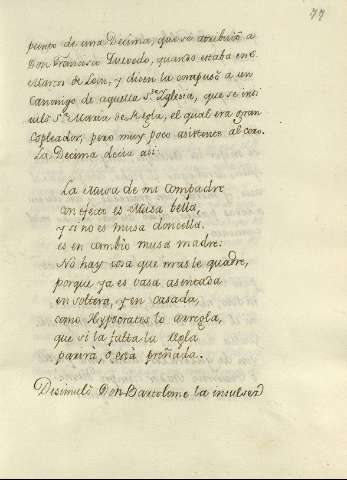 77
punto de una Decima, que se atribuió a
Don Francisco Quevedo, quando estaba en S.
Marcos de Leon, y dicen la compuso a un
Canonigo de aquella S.ta Yglesia, que se inti
tuló S.ta Maria de Regla, el qual era gran
Copleador, pero muy poco asistente al coro.
La Decima decia asi:
La Musa de mi Compadre
con efecto es Musa bella,
y si no es musa doncella
es en cambio musa madre:
No hay cosa que mas le quadre,
porque ya es basa asentada
en soltera, y en casada,
como Hypocrates lo arregla,
que si la falta la regla
parirá, o está preñada.
Disimuló Don Bartolome la insulsed